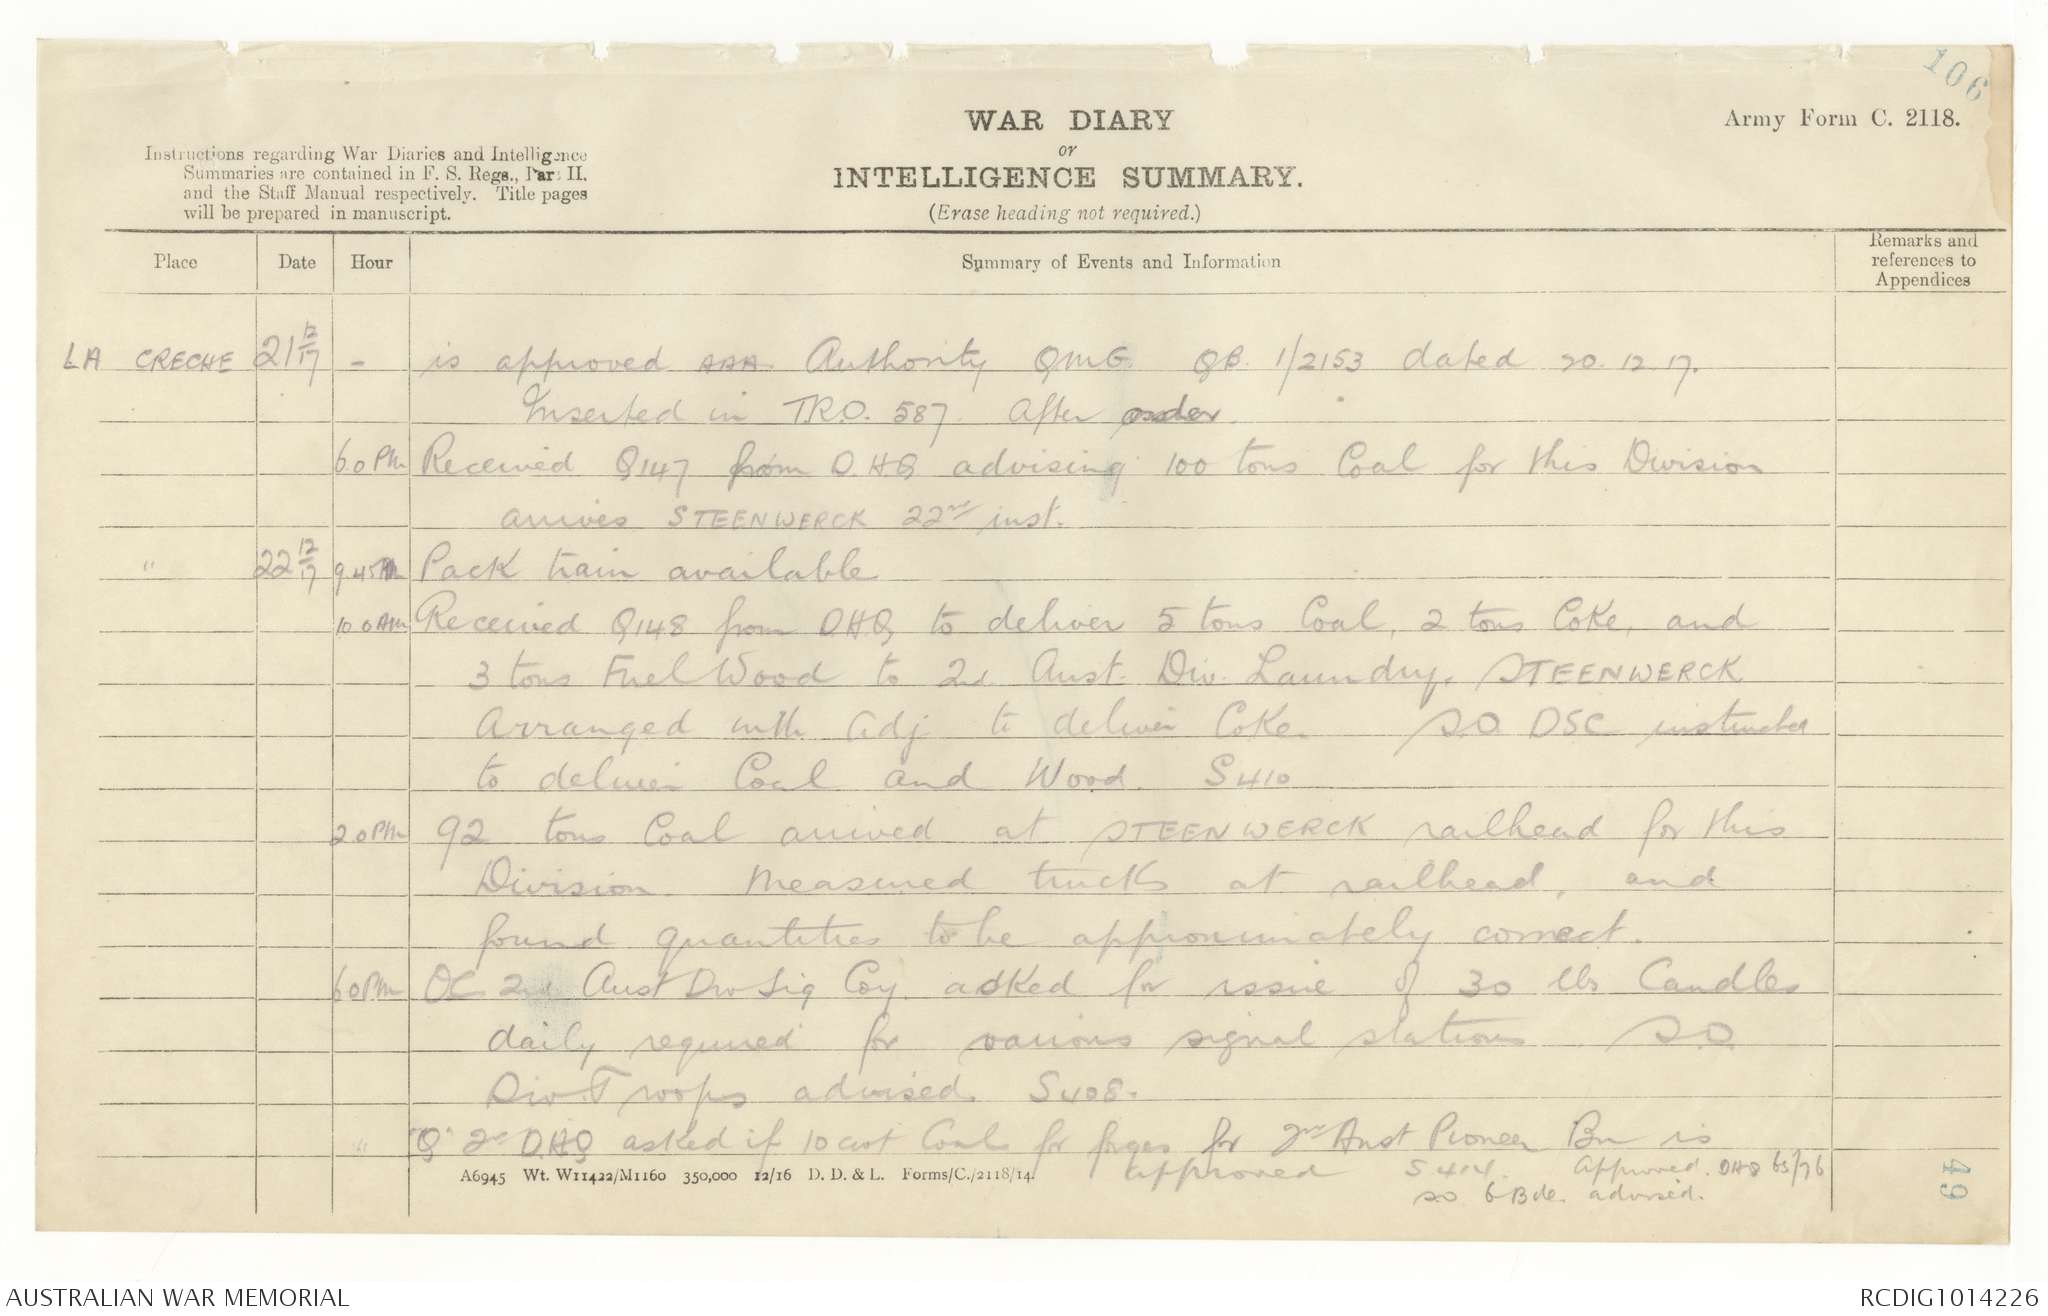 106
WAR DIARY
or
INTELLIGENCE SUMMARY.
(Erase heading not required.)
Army Form C. 2118.
Instructions regarding War Diaries and Intelligence
Summaries are contained in F. S. Regs., Part II.
and the Staff Manual respectively. Title pages
will be prepared in manuscript.
Place Date Hour Summary of Events and Information Remarks and references to Appendices
LA CRECHE 21 12/17 - is approved AAA. Authority QMG QB. 1/2153 dated 20.12.17.
Inserted in T.R.O. 587. After order.
6.0 PM Received Q147 from D.HQ advising 100 tons Coal for this Division
arrives STEENWERCK 22nd inst.
" 22 12/17 9.45 AM Pack train available
10.0 AM Received Q148 from DHQ, to deliver 5 tons Coal, 2 tons Coke, and
3 tons Fuel Wood to 2nd Aust. Div. Laundry, STEENWERCK
Arranged with Adj to deliver Coke. S.O. DSC instructed
to deliver Coal and Wood. S410
2.0 PM 92 tons Coal arrived at STEENWERCK railhead for this
Division. Measured trucks at railhead, and
found quantities to be approximately correct.
6.0 PM OC 2nd Aust Div Sig Coy. asked for issue of 30 lbs Candles
daily required for various signal stations S.O.
Div. Troops advised S408.
" "Q" 2nd D.HQ asked if 10 cwt Coal for forges for 2nd Aust Pioneer Bn is
approved S414. Approved. DHQ 65/76
S.O. 6 Bde. advised.
A6945 Wt. W11422/M1160 350,000 12/16 D. D. & L. Forms/C./2118/14.
49
AUSTRALIAN WAR MEMORIAL
RCDIG1014226